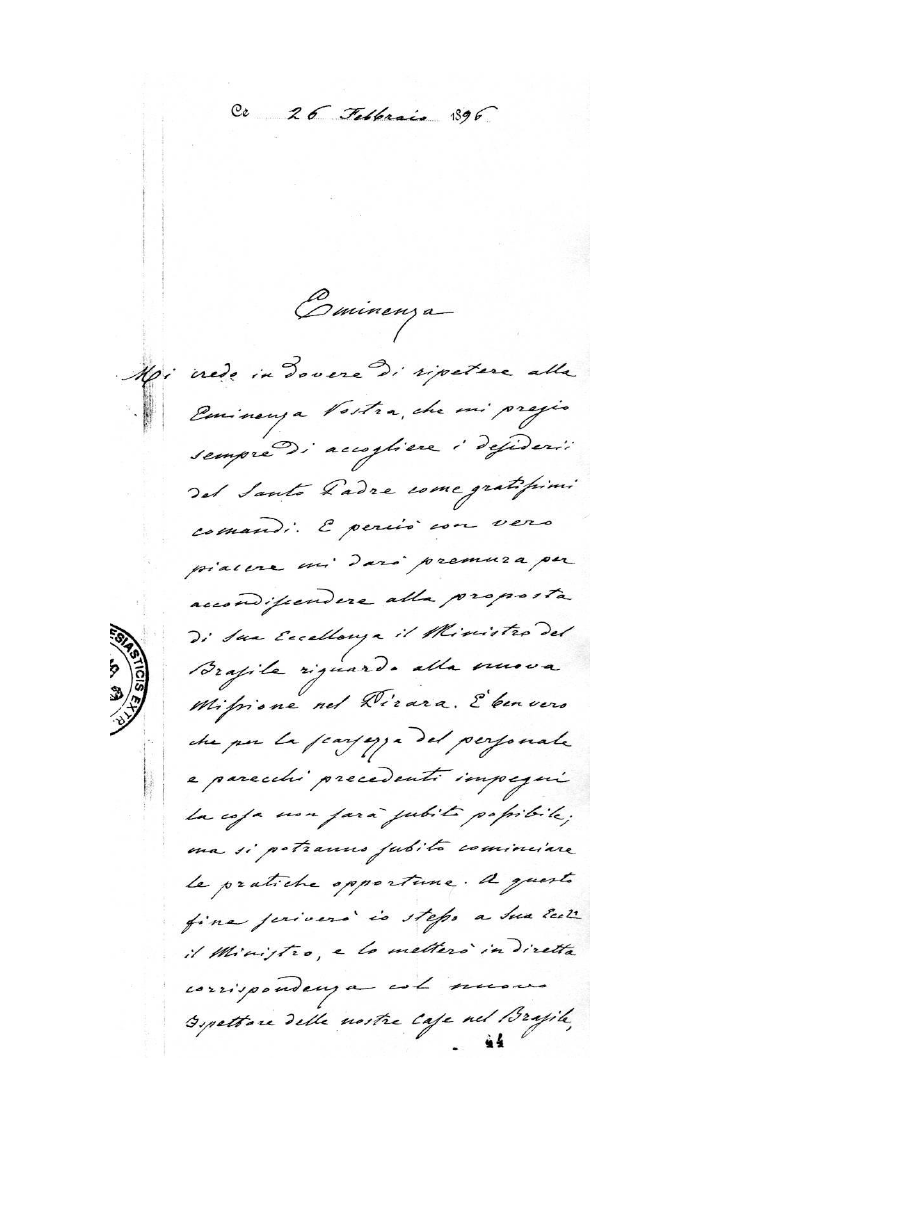 Cr 26 Febbraio 1896
Eminenza
Mi credo in dovere di ripetere alla
Eminenza Vostra, che mi pregio
sempre di accogliere i desiderii
del Santo Padre come gratissimi
comandi. E perciò con vero
piacere mi darò premura per
accondiscendere alla proposta
di Sua Eccellenza il Ministro del
Brasile riguardo alla nuova
Missione nel Pirara. È ben vero
che per la scarsezza del personale
e parecchi precedenti impegni
la cosa non sarà subito possibile;
ma si potranno subito cominciare
le pratiche opportune. A questo
fine scriverò io stesso a Sua Ecc.za
il Ministro, e lo metterò in diretta
corrispondenza col nuovo
Ispettore delle nostre Case nel Brasile,
44
ESIASTICIS EXTR.